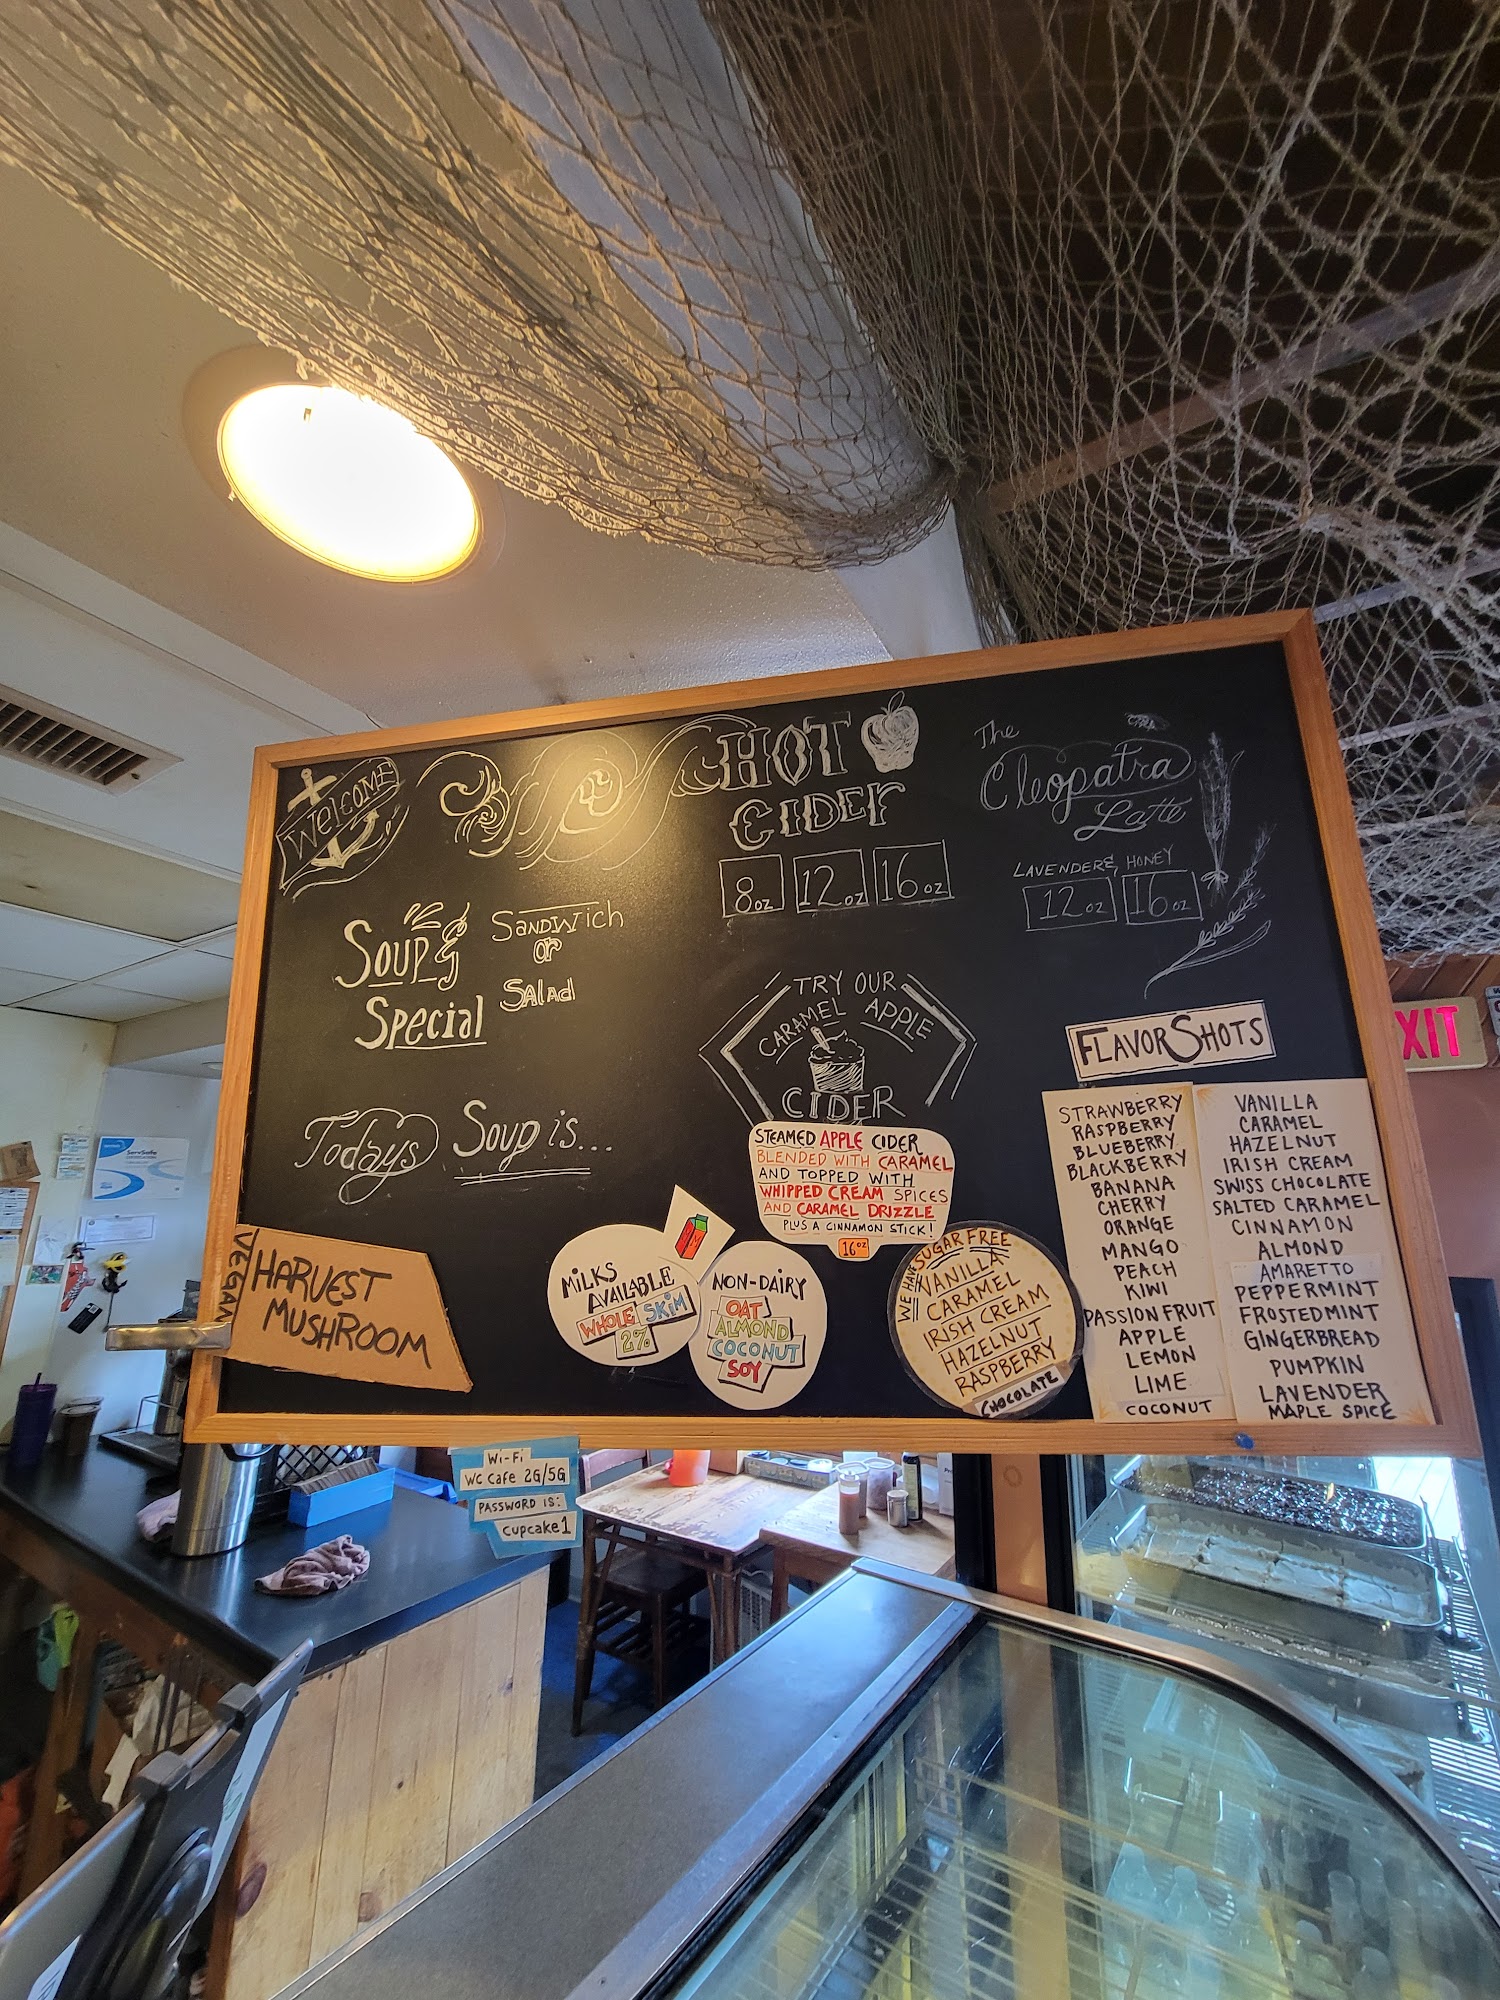 WELCOME
SOUP &
Special
SANDWICH
or
SALAD
Todays Soup is...
VEGAN
HARVEST
MUSHROOM
HOT
CIDER
8oz 12oz 16oz
The
Cleopatra
Latte
LAVENDER & HONEY
12oz 16oz
TRY OUR
CARAMEL APPLE
CIDER
STEAMED APPLE CIDER
BLENDED WITH CARAMEL
AND TOPPED WITH
WHIPPED CREAM SPICES
AND CARAMEL DRIZZLE
PLUS A CINNAMON STICK!
16oz
MILKS
AVAILABLE
WHOLE SKIM
2%
NON-DAIRY
OAT
ALMOND
COCONUT
SOY
WE HAVE
SUGAR FREE
VANILLA
CARAMEL
IRISH CREAM
HAZELNUT
RASPBERRY
CHOCOLATE
FLAVOR SHOTS
STRAWBERRY
RASPBERRY
BLUEBERRY
BLACKBERRY
BANANA
CHERRY
ORANGE
MANGO
PEACH
KIWI
PASSION FRUIT
APPLE
LEMON
LIME
COCONUT
VANILLA
CARAMEL
HAZELNUT
IRISH CREAM
SWISS CHOCOLATE
SALTED CARAMEL
CINNAMON
ALMOND
AMARETTO
PEPPERMINT
FROSTEDMINT
GINGERBREAD
PUMPKIN
LAVENDER
MAPLE SPICE
XIT
Wi-Fi
WC Cafe 2G/5G
PASSWORD IS:
cupcake1
ServSafe